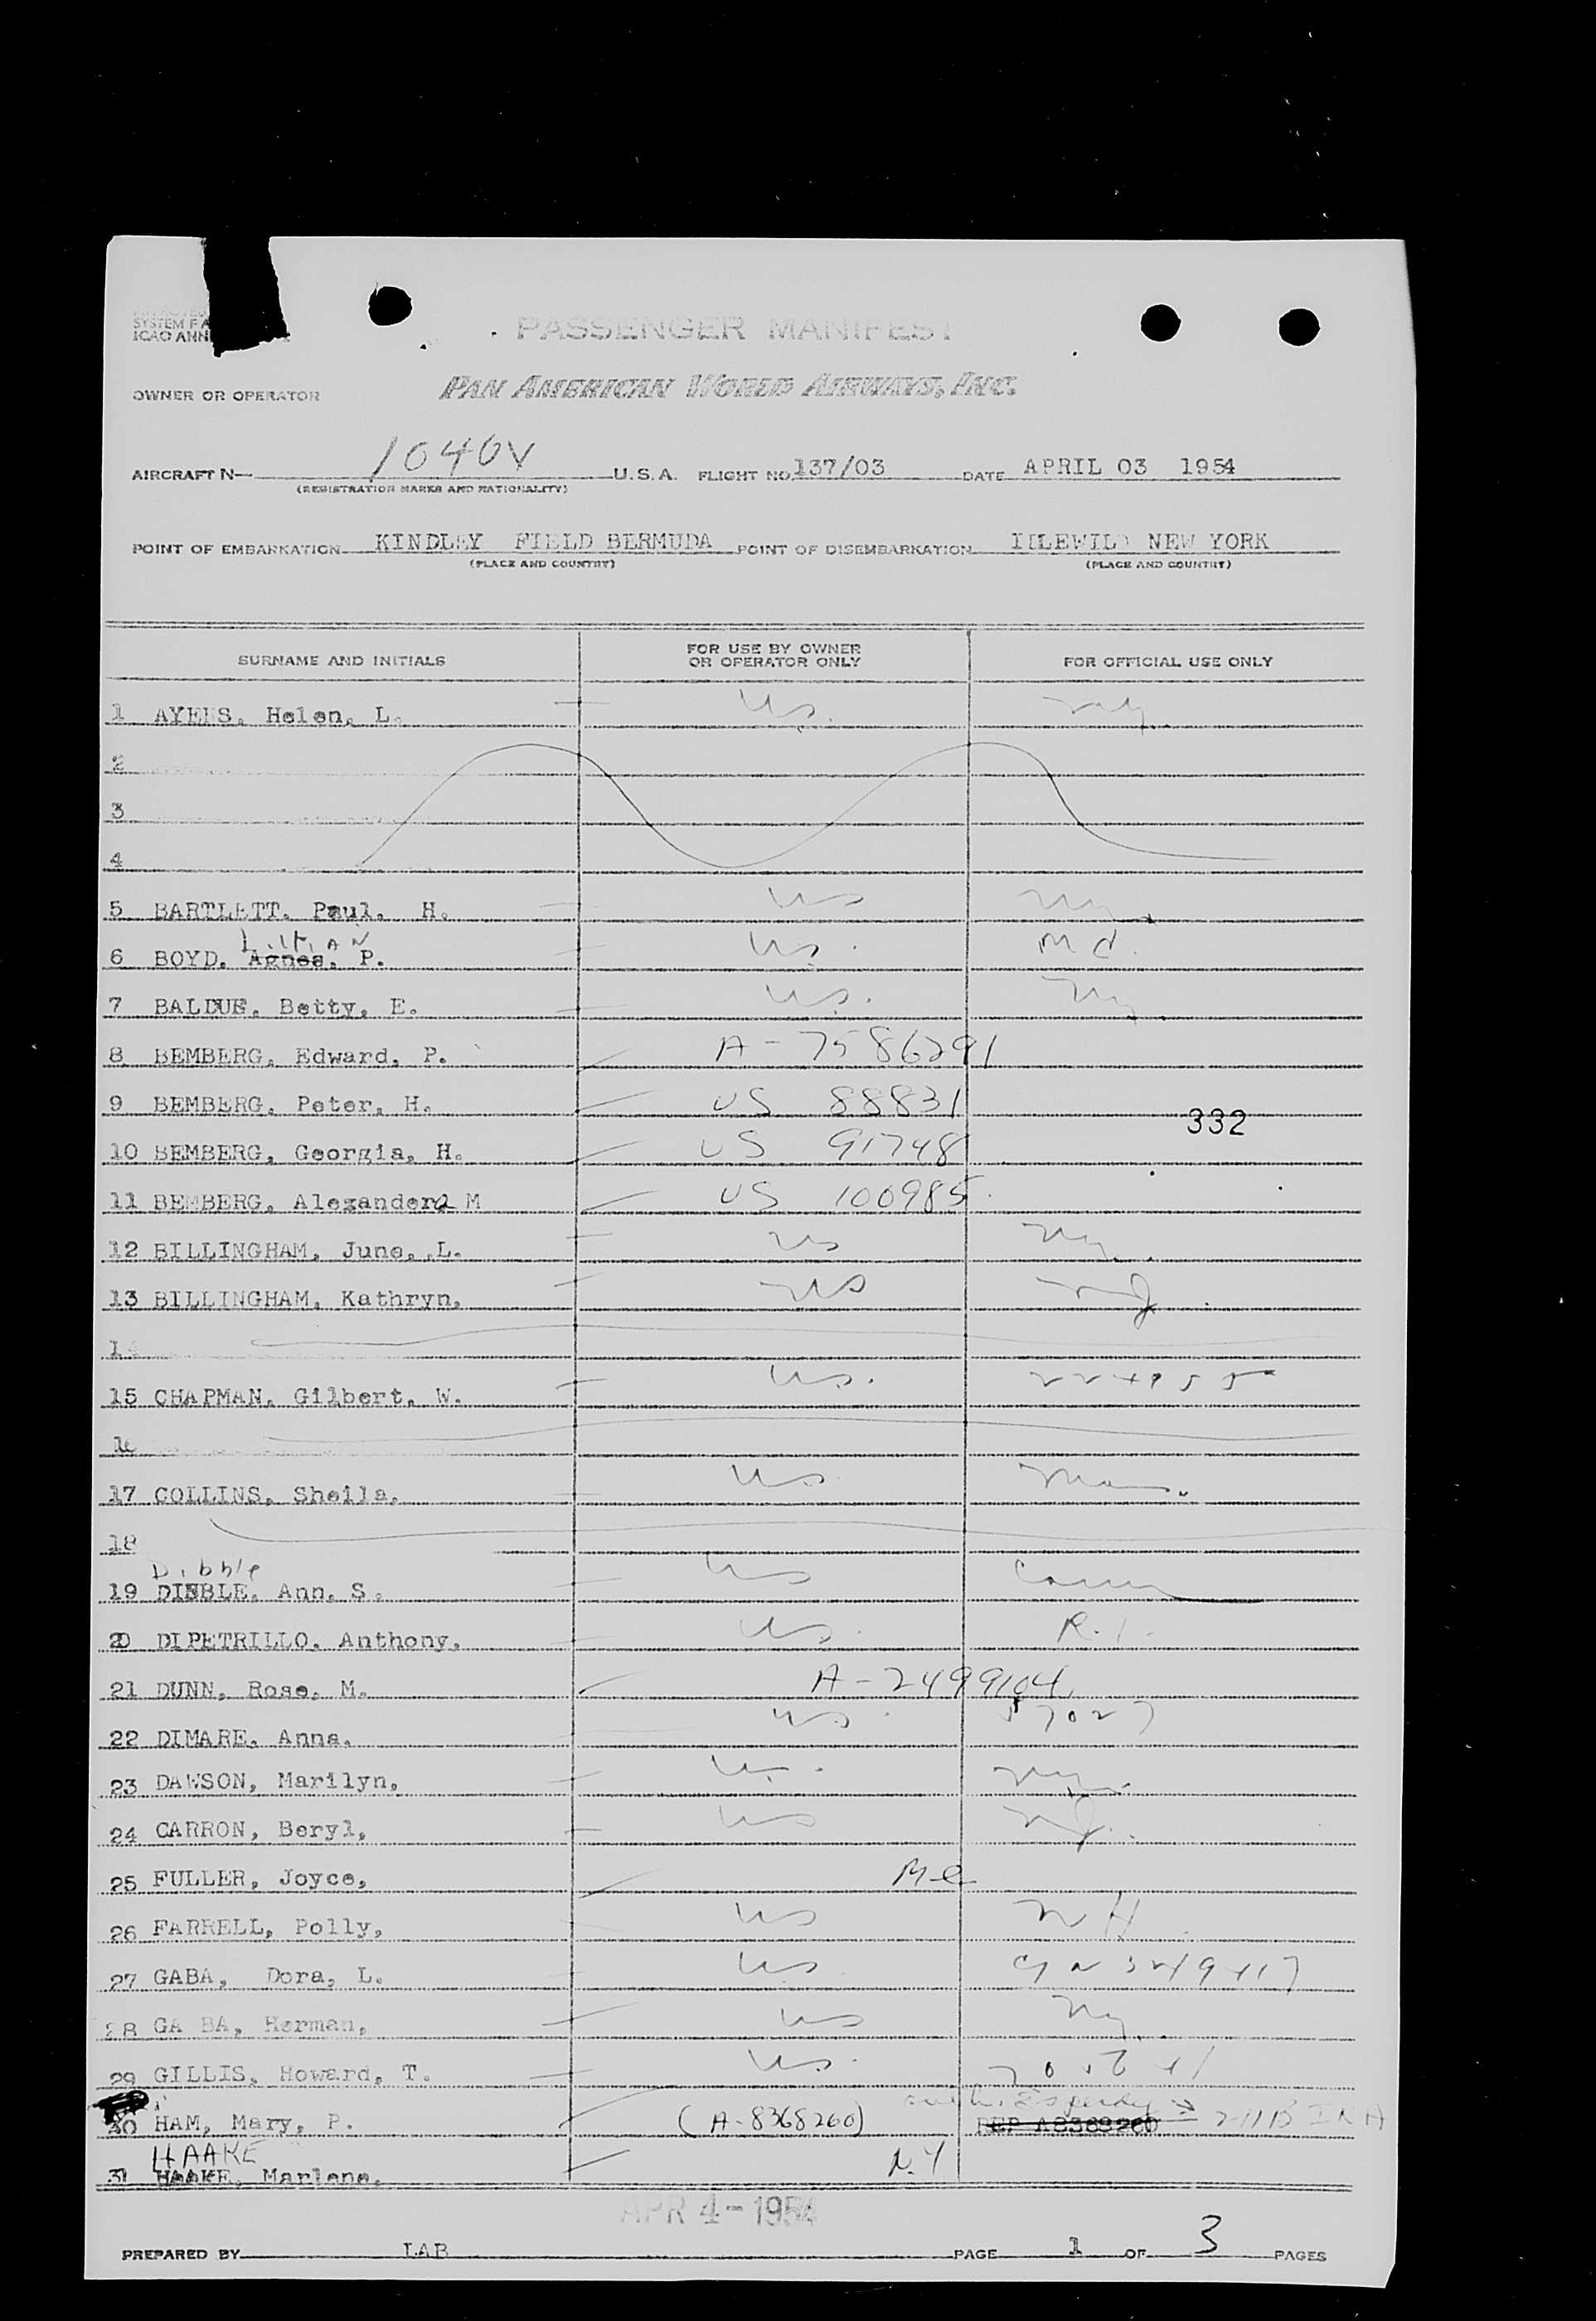 SYSTEM F A
ICAO ANN
PASSENGER MANIFEST
OWNER OR OPERATOR PAN AMERICAN WORLD AIRWAYS, INC.
AIRCRAFT N— 1040V U.S.A. FLIGHT NO. 137/03 DATE APRIL 03 1954
(REGISTRATION MARKS AND NATIONALITY)
POINT OF EMBARKATION KINDLEY FIELD BERMUDA POINT OF DISEMBARKATION IDLEWILD NEW YORK
(PLACE AND COUNTRY) (PLACE AND COUNTRY)
SURNAME AND INITIALS FOR USE BY OWNER OR OPERATOR ONLY FOR OFFICIAL USE ONLY
1 AYERS, Helen, L. US. NY.
2
3
4
5 BARTLETT, Paul, H. US NY
6 BOYD, Lillian Agnes, P. US. Md.
7 BALDUE, Betty, E. US. NY
8 BEMBERG, Edward, P. A-7586291
9 BEMBERG, Peter, H. US 88831
332
10 BEMBERG, Georgia, H. US 91748
11 BEMBERG, Alexandera M US 100985
12 BILLINGHAM, June, L. US NY
13 BILLINGHAM, Kathryn, US NJ
14
15 CHAPMAN, Gilbert, W. US.
16
17 COLLINS, Sheila, US Mass.
18
Dibble
19 DIBBLE, Ann, S. US Conn
20 DIPETRILLO, Anthony, US. R.I.
21 DUNN, Rose, M. A-2499104
22 DIMARE, Anna, US. 57027
23 DAWSON, Marilyn, US. NY
24 CARRON, Beryl, US NJ.
25 FULLER, Joyce, Me
26 FARRELL, Polly, US NH
27 GABA, Dora, L. US
28 GA BA, Herman, US NY
29 GILLIS, Howard, T. US.
30 HAM, Mary, P. (A-8368260) REP A8368260 211B INA
HAAKE
31 HAAKE, Marlene, N.Y
APR 4-1954
PREPARED BY LAB PAGE 1 OF 3 PAGES